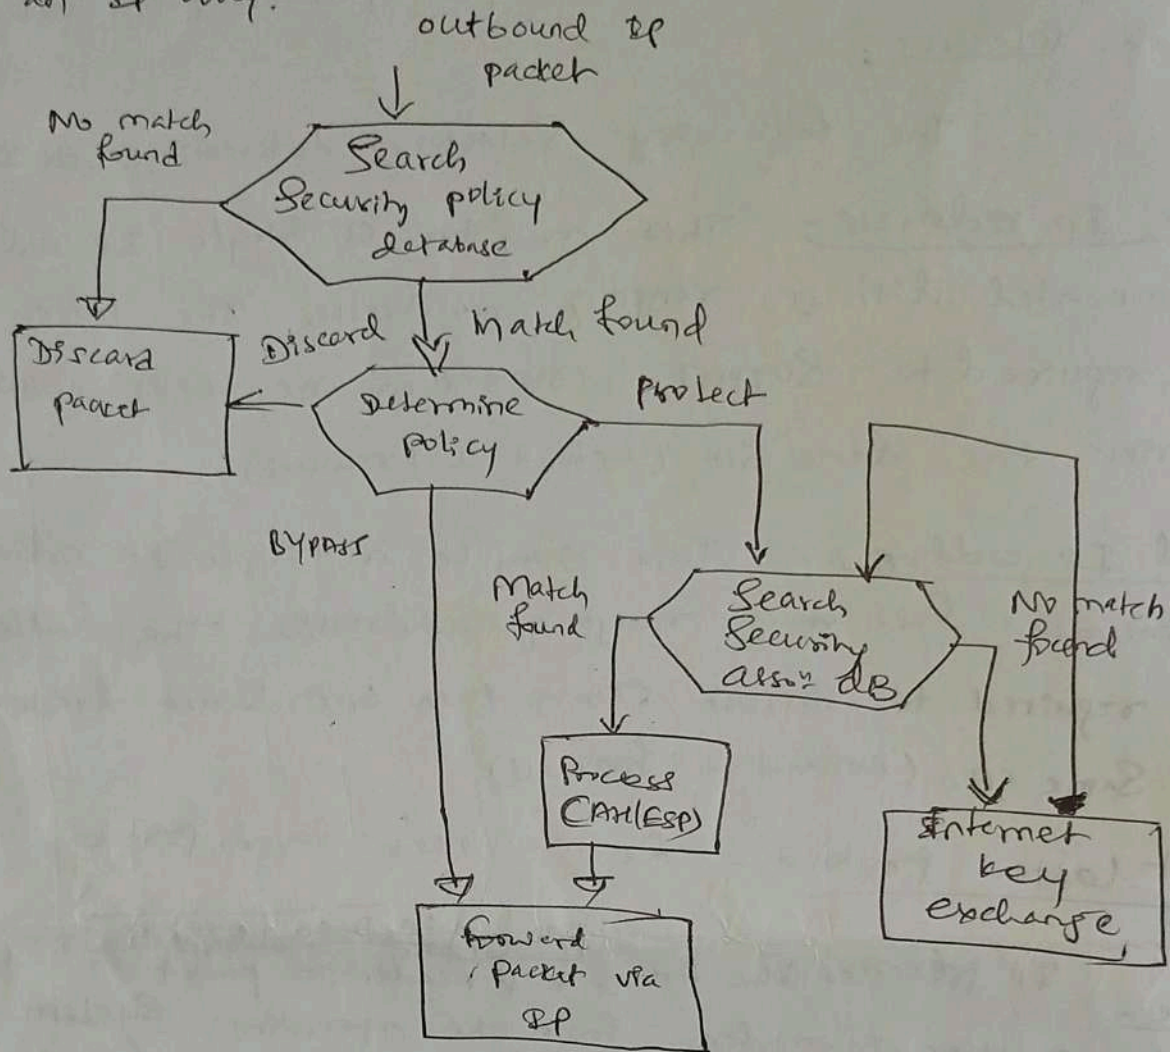 outbound IP
packet
No match
found
Search
Security policy
database
Match found
Discard
Discard
packet
Determine
policy
Protect
BYPASS
Match
found
Search
Security
assoⁿ dB
No match
found
Process
(AH/ESP)
Internet
key
exchange
forward
packet via
IP